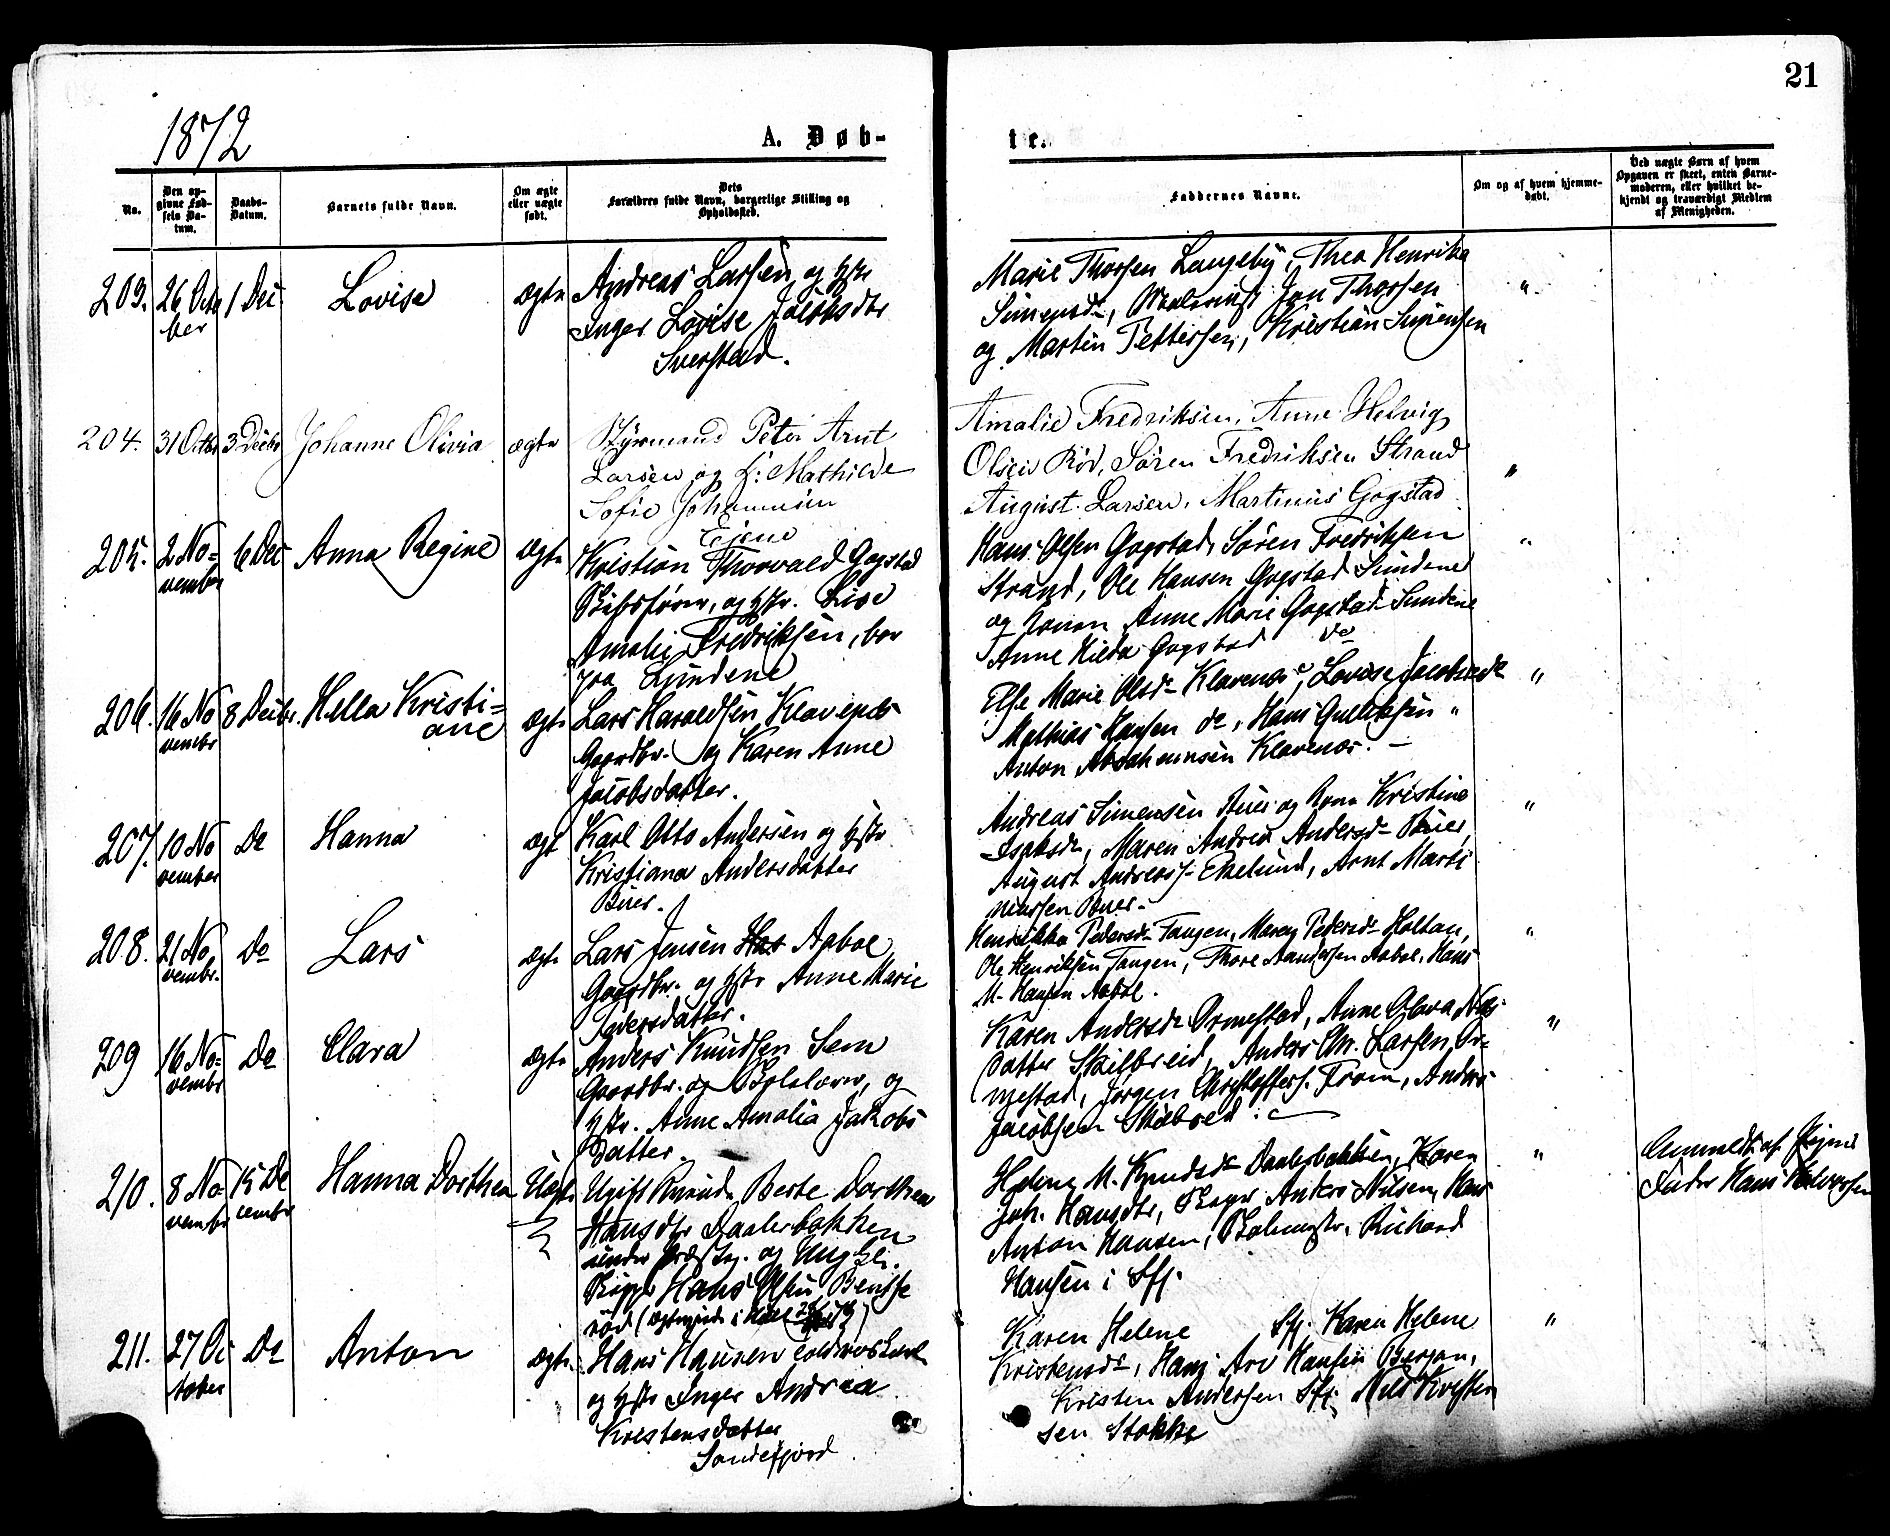 21
1872
A. Døb-
te.
No.
Den op-
givne Fød-
sels Da-
tum.
Daabs-
Datum.
Barnets fulde Navn.
Om ægte
eller uægte
født.
Dets
Forældres fulde Navn, borgerlige Stilling og
Opholdssted.
Faddernes Navne.
Om og af hvem hjemme-
døbt.
Ved uægte Børn af hvem
Opgaven er skeet, enten Barne-
moderen, eller hvilket be-
kjendt og troværdigt Medlem
af Menigheden.
203. 26 Octo
ber
1 Dec
Lovise
ægte
Andreas Larsen og Hstr
Inger Lovise Jacobsdtr
Marie Thorsen Langeby, Thea Henrika
Jan Thorsen
og Martin Pettersen, Kristian Simensen
"
204. 31 Octbr 3 Decbr Johanne Olivia ægte
Styrmand Peter Arnt
Larsen og H: Mathilde
Sofie Johannesen
Amalie Fredriksen, Anne Helvig
Olsen Rød, Søren Fredriksen Strand
August Larsen, Martinius Gogstad
"
205. 2 No=
vember
6 Dec
Anna Regine
ægte
Kristian Thorvald Gogstad
Skibsfører, og Hstr. Lise
Amalie Fredriksen, bor
paa Sundene
Hans Olsen Gogstad, Søren Fredriksen
Strand, Ole Hansen Gogstad Sundene
og Konen Anne Marie Gogstad Sundene
Anne Hilda Gogstad do
"
206. 16 No
vembr
8 Decbr.
Hella Kristi=
ane
ægte
Lars Haraldsen Klavenæs
Gaardbr. og Karen Anne
Jacobsdatter.
Else Marie Olsdr Klavenæs, Lovise Jacobsdr
Mathias Hansen do, Hans Gulliksen "
Anton Abrahamsen Klavenæs. –
"
207. 10 No
vember
Do
Hanna
ægt
Karl Otto Andersen og Hstr
Kristiana Andersdatter
Buer.
Andreas Simensen Buer og Kone Kristine
Isaksdr, Maren Andrea Andersdr Buer,
August Andreass. Ekelund, Arnt Marti
niussen Buer.
"
208. 21 No
vembr.
Do
Lars
ægte
Lars Jensen Aabol
Gaardbr. og Hstr Anne Marie
Pedersdatter.
Henrikka Pedersdr Tangen, Maren Pedersdr Holtan,
Ole Henriksen Tangen, Thore Aabol, Hans
M. Hansen Aabol.
"
209 16 No=
vembr
Do
Clara
ægte
Anders Knudsen Sem
Gaardbr. og Skolelærer, og
Hstr. Anne Amalia Jakobs
Datter.
Karen Andersdr Ormestad, Anne Olava
datter Skilbreid, Anders Chr. Larsen Or=
mestad, Jørgen Christoffers. Fram, Anders
Jacobsen
"
210. 8 No
vembr
15 De
cembr
Hanna Dorthea
Uægte
Ugift Berte Dorthea
Hansdtr Daalerbakken
under Præstg. og Ungk.
Skipp. Hans Olsen
Helene M. Knudsdr Daalerbakken, Karen
Joh. Hansdtr, Anders Nilsen, Hans
Anton Hansen, Richard
Hansen i Sfj.
"
Anmeldt af
Hans Halvorsen
211. 27 Oc
tober
Do
Anton
ægte
Hans Hansen
og Hstr Inger Andrea
Kristensdatter
Sandefjord
Karen Helene Sfj. Karen Helene
Kristensdr, Hans Hansen Bergan,
Kristen Andersen Sfj. Nils Kristen
sen Stokke
"